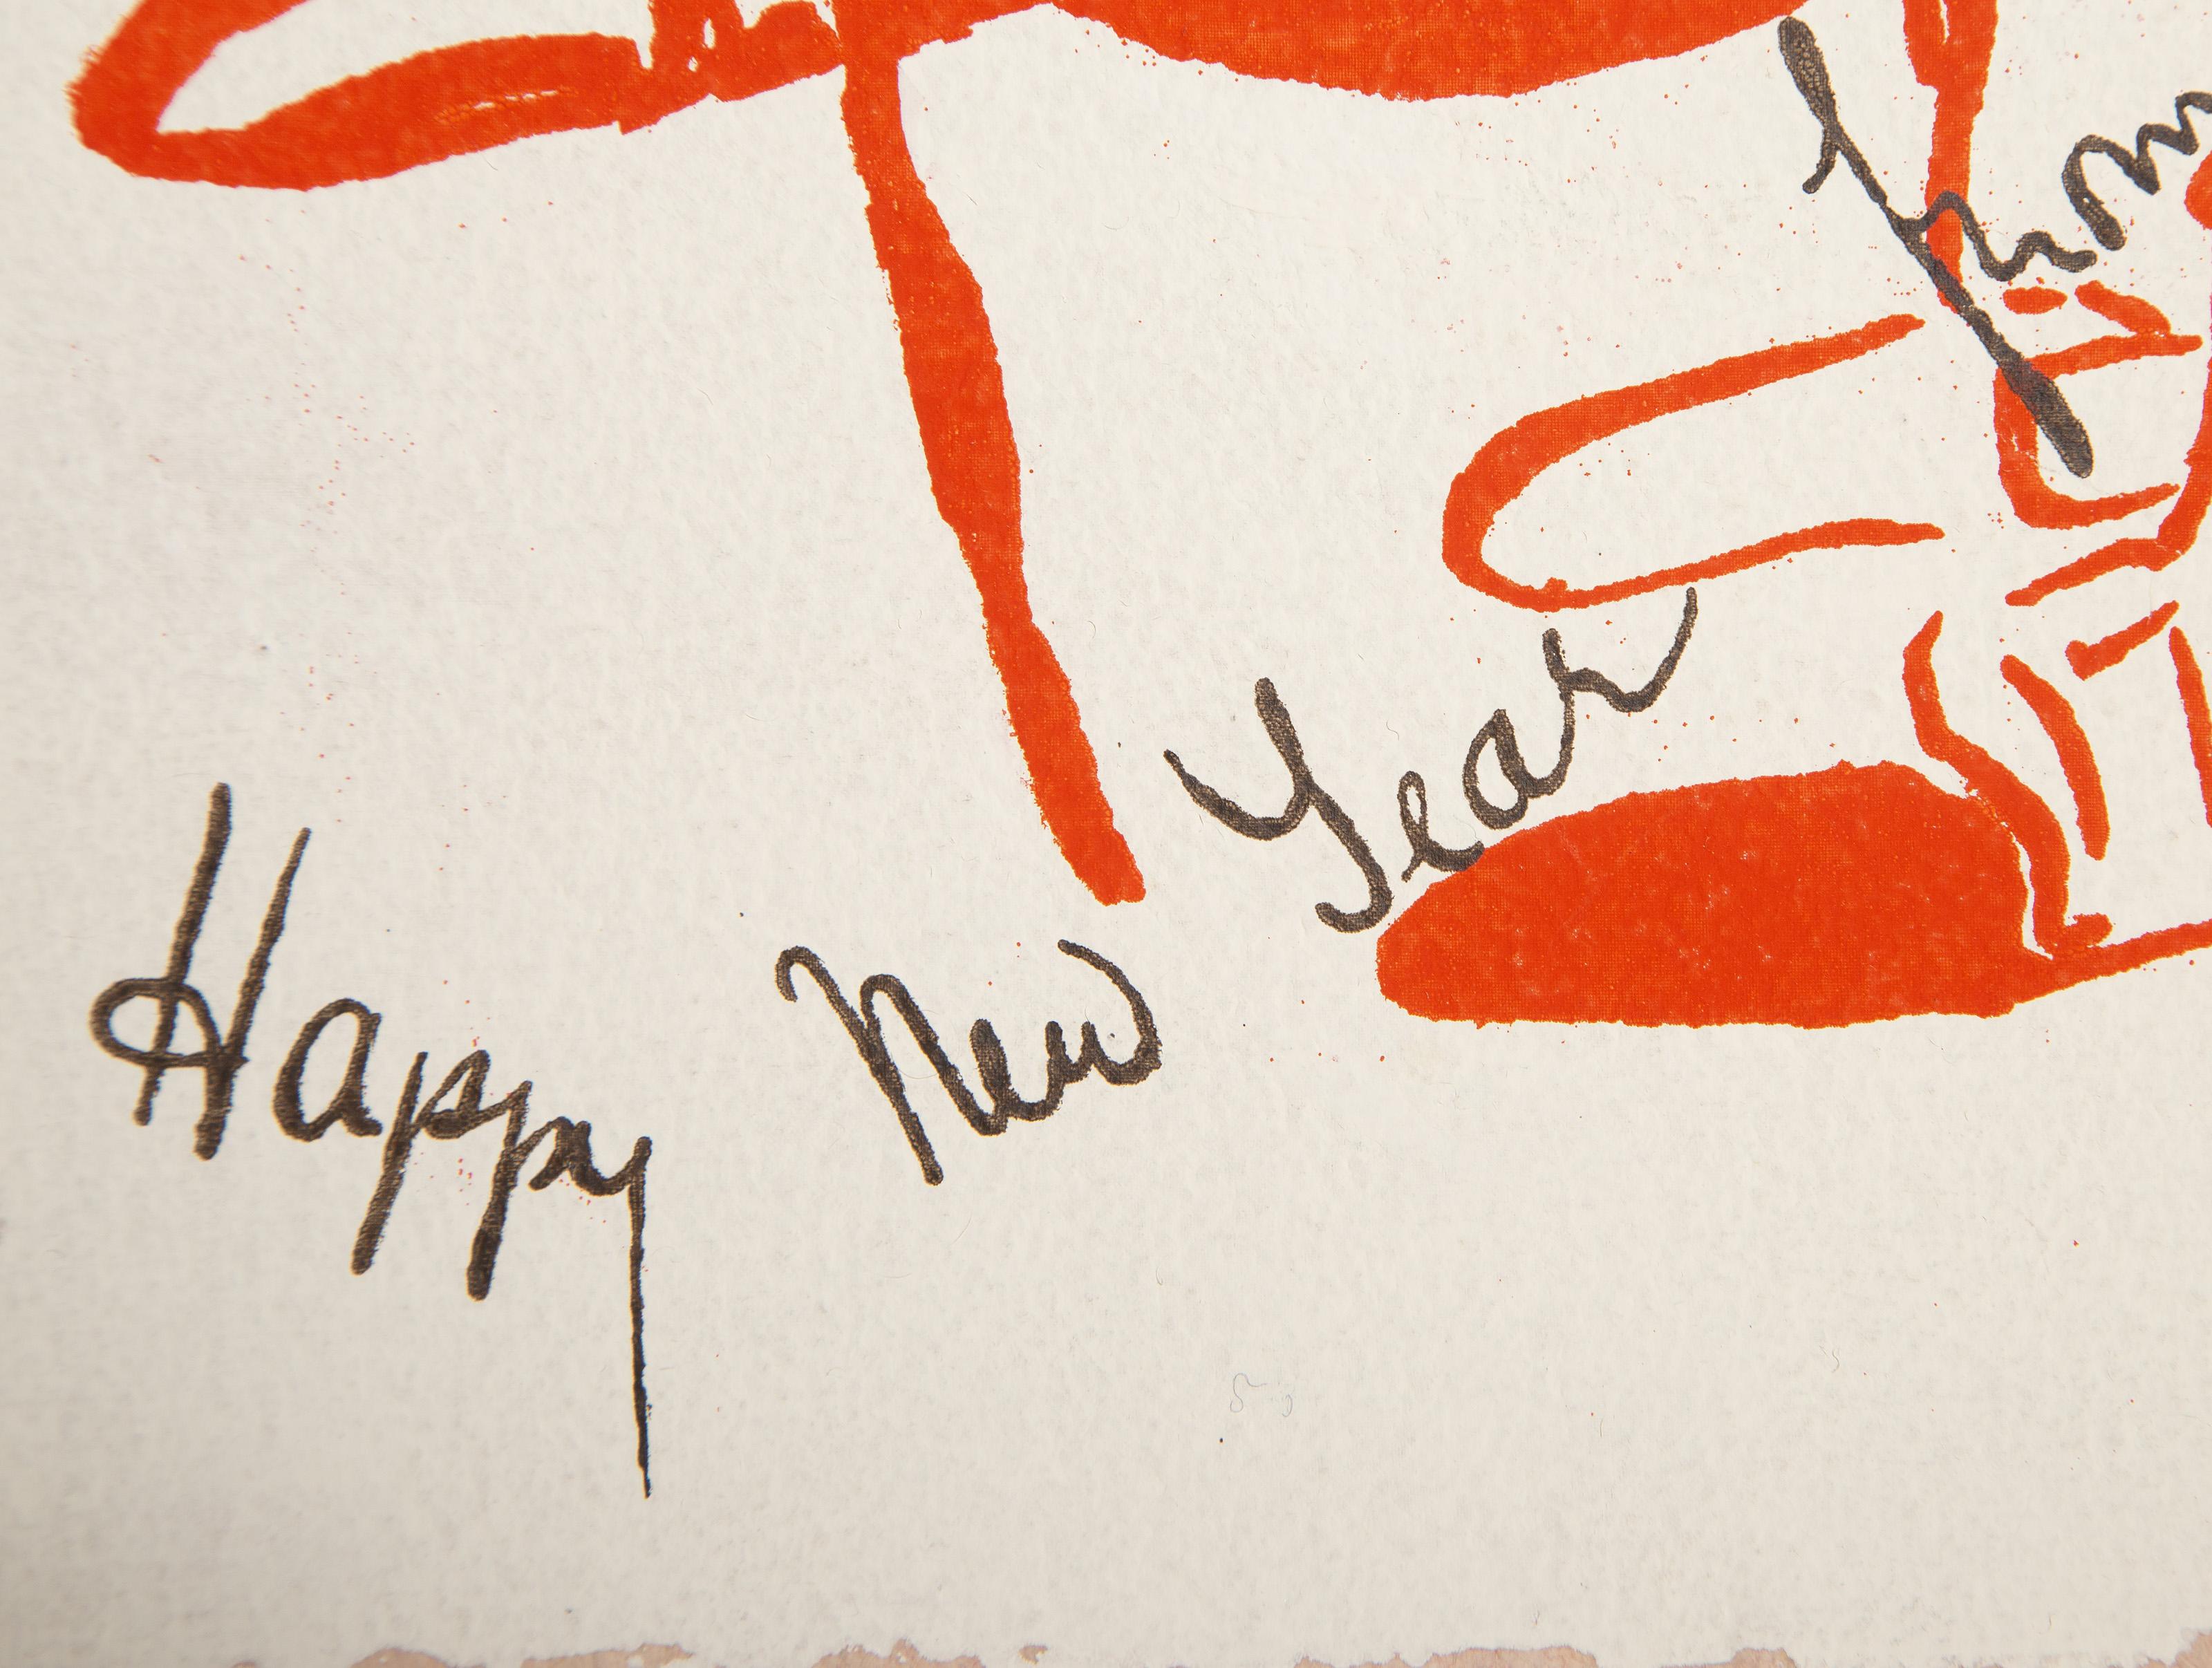 Happy New Year from